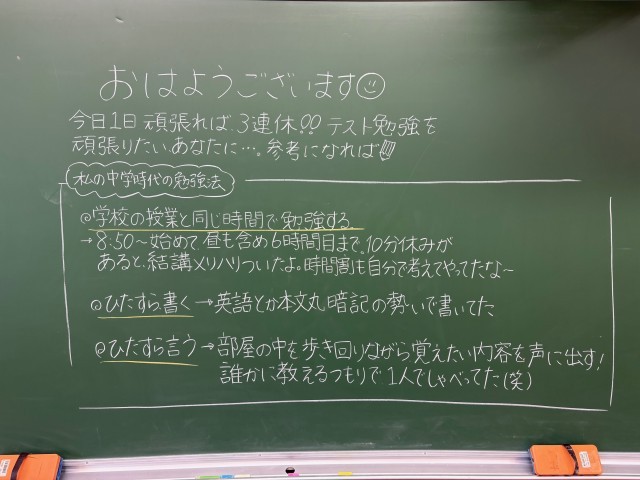 おはようございます☺
今日1日頑張れば、3連休!! テスト勉強を
頑張りたいあなたに…。参考になれば!!
私の中学時代の勉強法
◎学校の授業と同じ時間で勉強する
→8:50〜始めて、昼も含め6時間目まで。10分休みが
あると、結講メリハリついたよ。時間割も自分で考えてやってたな〜
◎ひたすら書く→英語とか本文丸暗記の勢いで書いてた
◎ひたすら言う→部屋の中を歩き回りながら覚えたい内容を声に出す!
誰かに教えるつもりで1人でしゃべってた(笑)